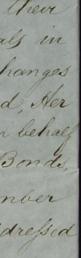 their
als in
hanges
d, Her
n behalf
Bonds,
mber
dressed